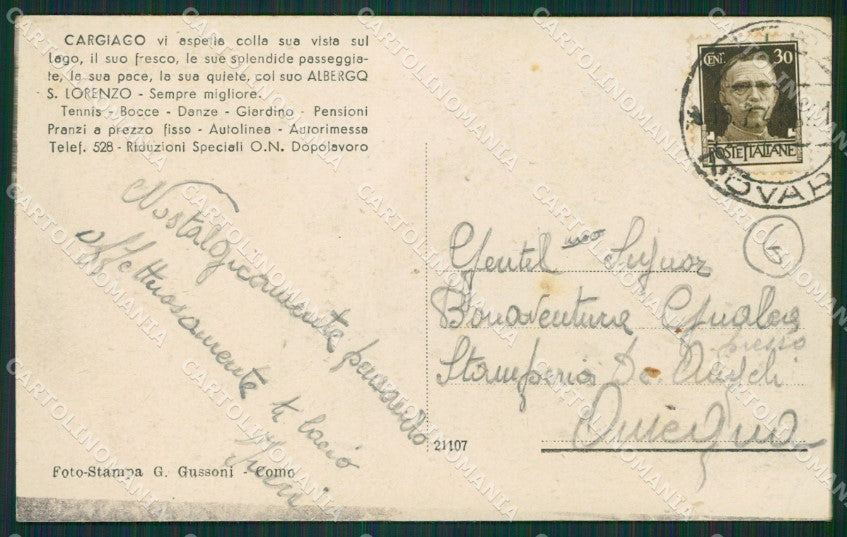 CARGIAGO vi aspetta colla sua vista sul
lago, il suo fresco, le sue splendide passeggia-
te, la sua pace, la sua quiete, col suo ALBERGO
S. LORENZO - Sempre migliore.
Tennis - Bocce - Danze - Giardino - Pensioni
Pranzi a prezzo fisso - Autolinea - Autorimessa
Telef. 528 - Riduzioni Speciali O.N. Dopolavoro
CENT. 30
POSTE ITALIANE
NOVARA
6
Nostalgicamente pensando
affettuosamente ti bacio
Gentil mo Signor
Bonaventura
presso
Stamperia De
Omegna
21107
Foto-Stampa G. Gussoni - Como
CARTOLINOMANIA